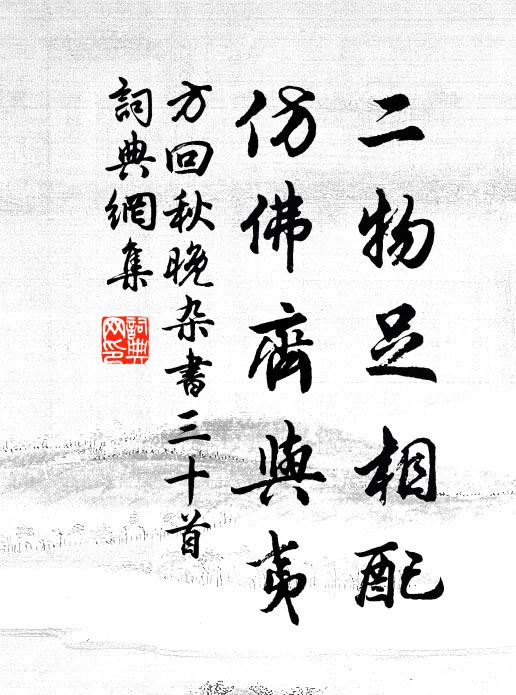 二物足相配
仿佛齊與夷
方回秋晚杂書三十首
詞典網集
詞典网印